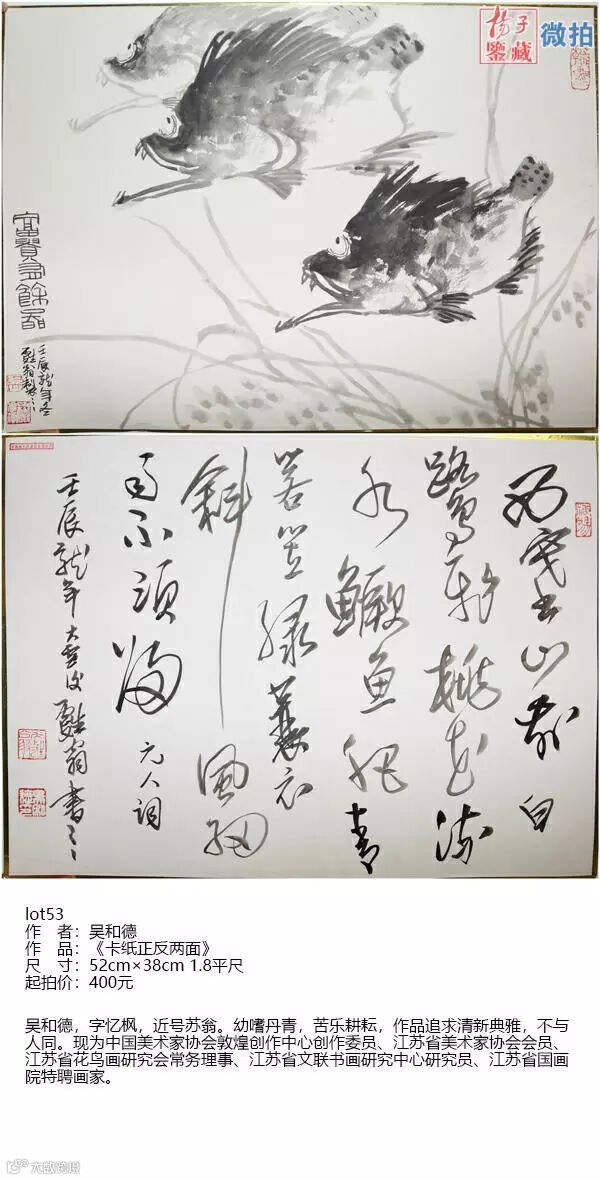 揚子
鑒藏
微拍
富貴有餘圖
壬辰龍年冬
西塞山前白
鷺飛桃花流
水鱖魚肥青
箬笠绿蓑衣
斜風細
雨不須歸 元人詞
壬辰龍年大雪後穌翁書之
lot53
作 者：吴和德
作 品：《卡纸正反两面》
尺 寸：52cm×38cm 1.8平尺
起拍价：400元
吴和德，字忆枫，近号苏翁。幼嗜丹青，苦乐耕耘，作品追求清新典雅，不与
人同。现为中国美术家协会敦煌创作中心创作委员、江苏省美术家协会会员、
江苏省花鸟画研究会常务理事、江苏省文联书画研究中心研究员、江苏省国画
院特聘画家。
大数跨境